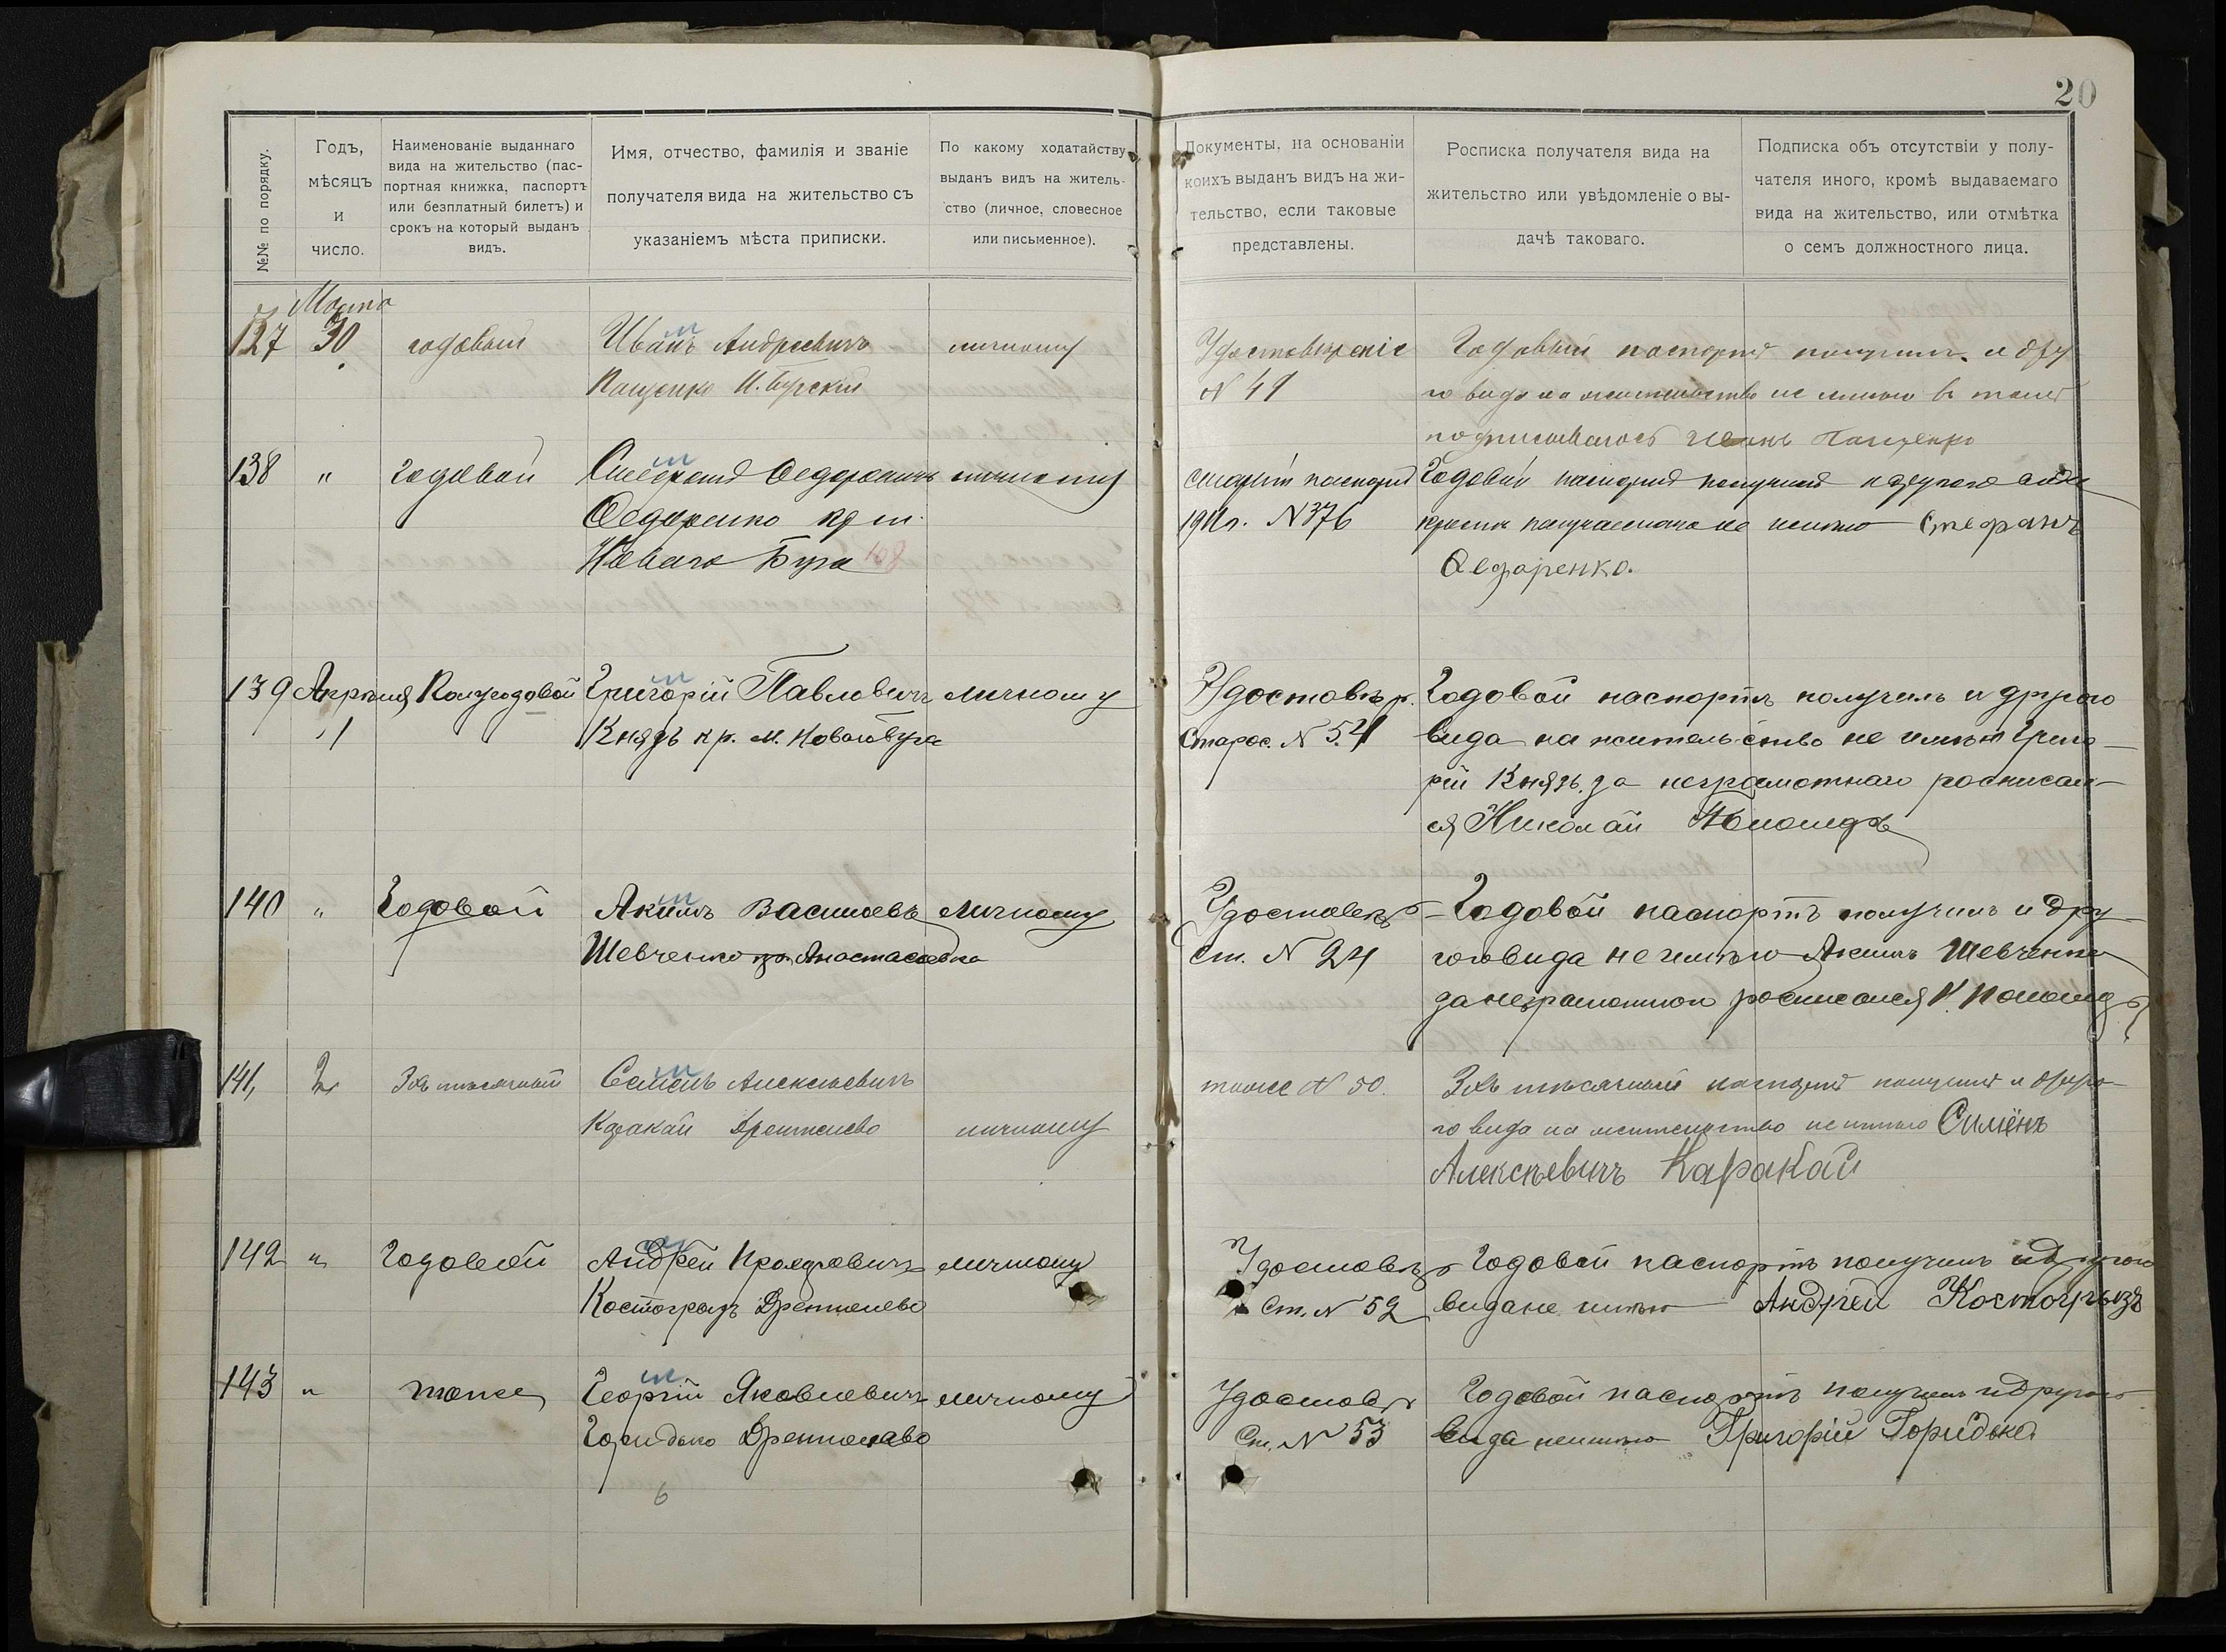 20
№№ по порядку.
Годъ, мѣсяцъ и число.
Наименованіе выданнаго
вида на жительство (пас-
портная книжка, паспортъ
или безплатный билетъ) и
срокъ на который выданъ
видъ.
Имя, отчество, фамилія и званіе
получателя вида на жительство съ
указаніемъ мѣста приписки.
По какому ходатайству
выданъ видъ на житель-
ство (личное, словесное
или письменное).
Документы, на основаніи
коихъ выданъ видъ на жи-
тельство, если таковые
представлены.
Росписка получателя вида на
жительство или увѣдомленіе о вы-
дачѣ таковаго.
Подписка объ отсутствіи у полу-
чателя иного, кромѣ выдаваемаго
вида на жительство, или отмѣтка
о семъ должностного лица.
Марта
127 30 годовый Иванъ Андреевичъ личному Удостовѣреніе Годовый паспортъ получилъ и дру
Пащенко Н. Бугскій N 49 го вида на жительство не имѣю в томъ
подписываюсь Иванъ Пащенко
138 " Годовой Федоровичъ личному паспортъ Годовый паспортъ получилъ и другого вида
Федоренко кр. м. 191 г. N 376 кромѣ получаемаго не имѣю Стефанъ
Новаго Буга 108 Федоренко.
139 Апрѣля Полугодовой Григорій Павловичъ личному Удостовѣр. Годовой паспортъ получилъ и другого
1 Князь кр. м. Новаго Буга Старос. N 54 вида на жительство не имѣю Григо-
рій Князь. за неграмотнаго росписал-
ся Николай
140 " Годовой Акимъ Васильевъ личному Удостовѣр Годовой паспортъ получилъ и дру-
Шевченко Анастасовка Ст. N 24 гого вида не имѣю Акимъ Шевченко
за неграмотнаго росписался
141, 2 3хъ мѣсячный Семенъ Алексѣевичъ тоже N 50. 3хъ мѣсячный паспортъ получилъ и друго-
Каракай личному го вида на жительство не имѣю Симёнъ
Алексѣевичъ Каракай
142 " Годовой Андрей личному Удостовѣр Годовой паспортъ получилъ и другого
Костогрызъ Ст. N 52 вида не имѣю Андрей Костогрызъ
143 " тоже Георгій Яковлевичъ личному Удостов Годовой паспортъ получилъ и другого
Горидько Ст. N 53 вида не имѣю Григорій Горидько
6